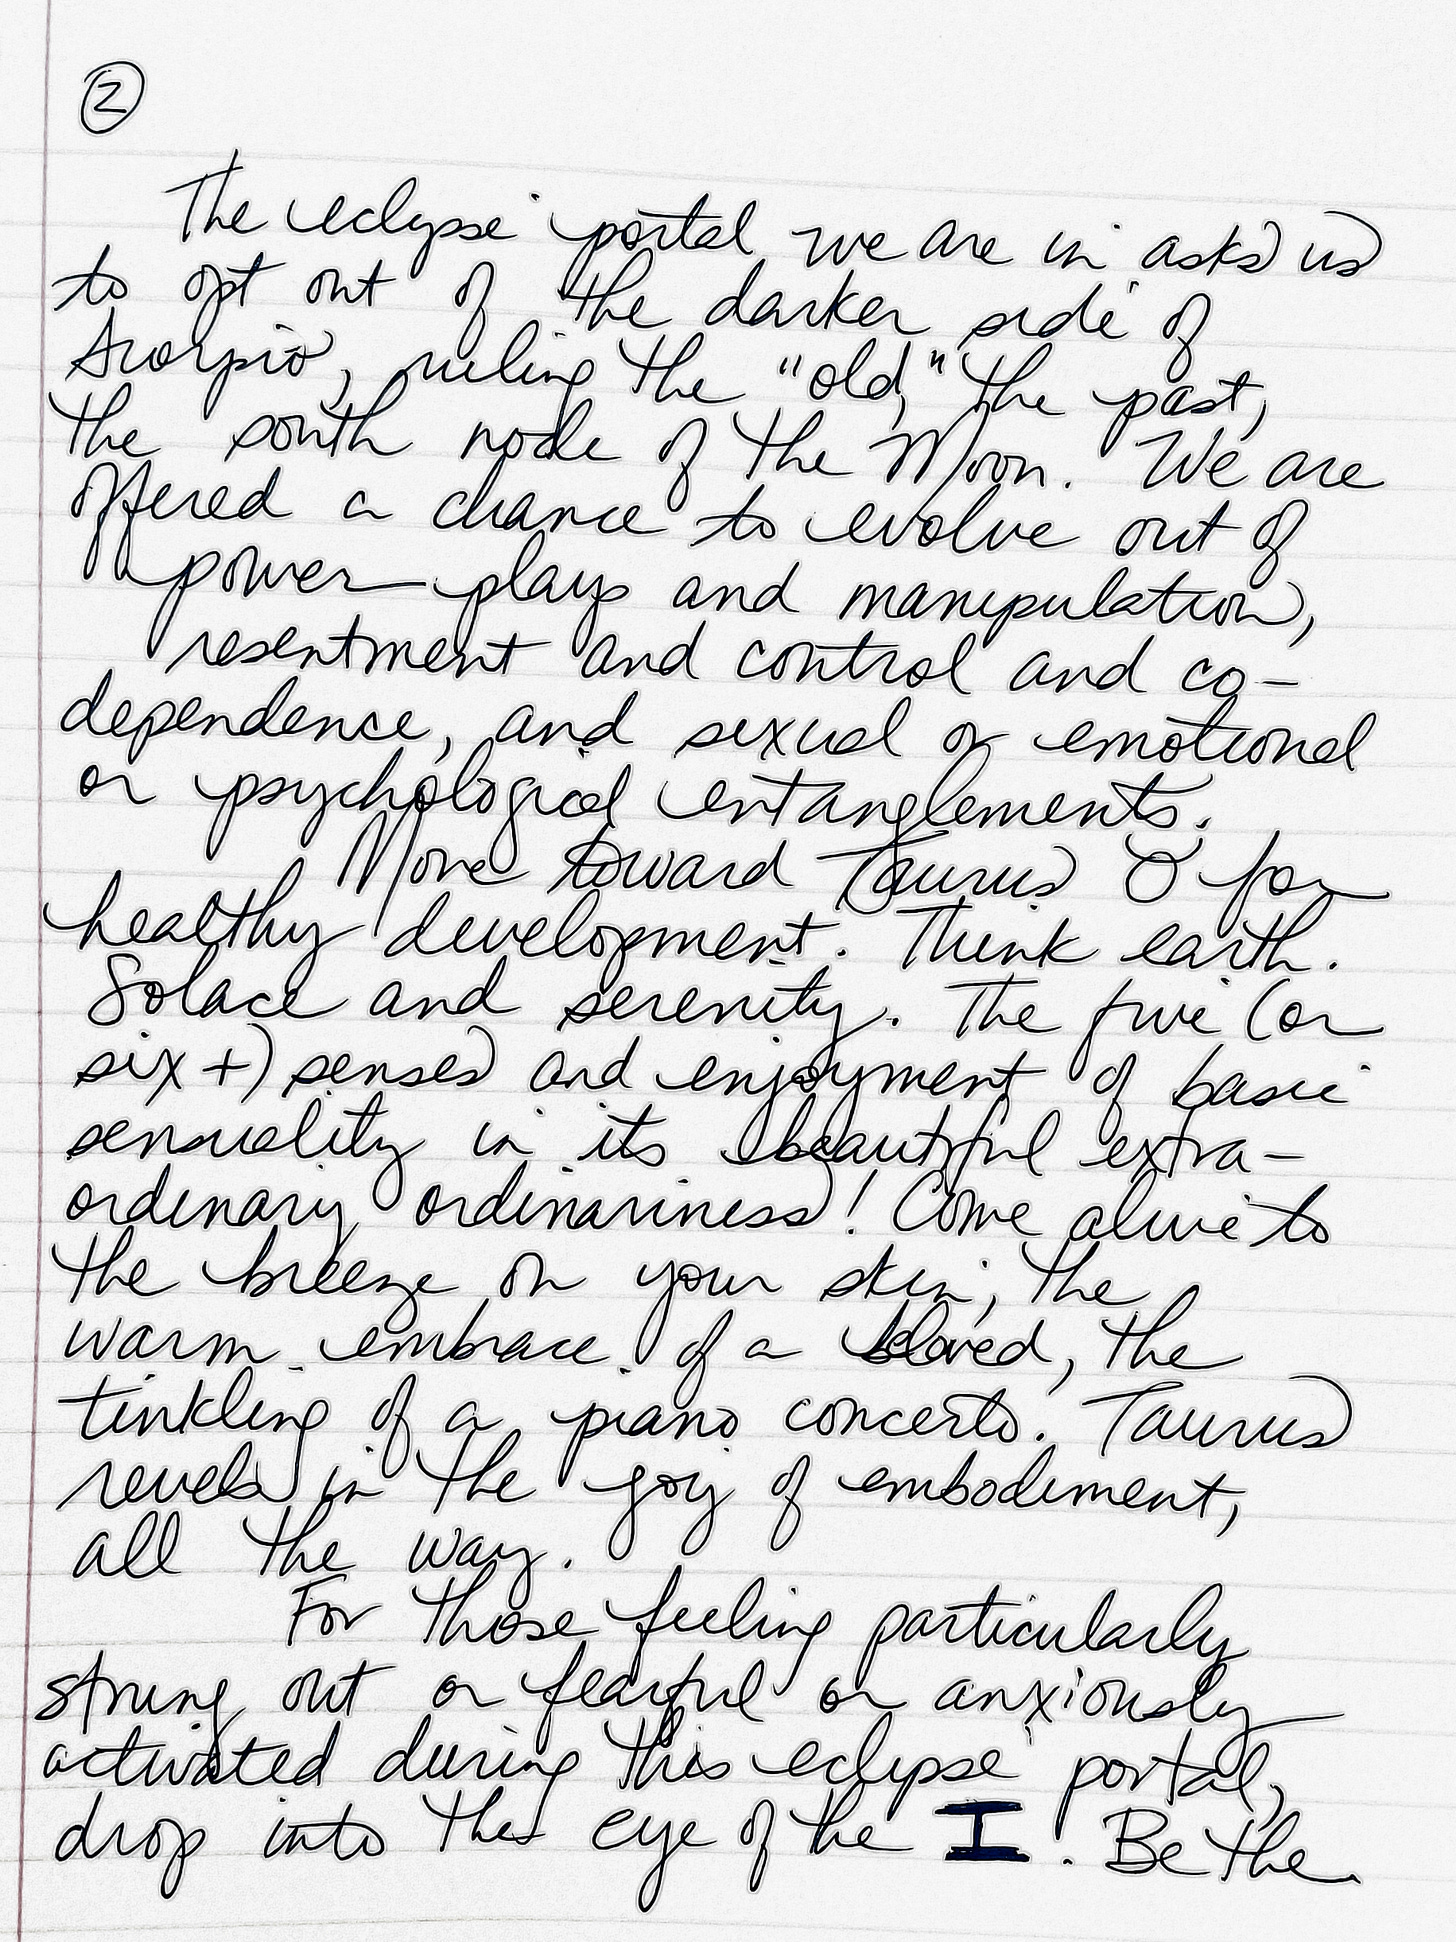 2
The eclipse portal we are in asks us
to opt out of the darker side of
Scorpio, ruling the "old," the past,
the south node of the Moon. We are
offered a chance to evolve out of
power plays and manipulation,
resentment and control and co-
dependence, and sexual or emotional
or psychological entanglements.
Move toward Taurus ♉ for
healthy development. Think earth.
Solace and serenity. The five (or
six+) senses and enjoyment of basic
sensuality in its beautiful extra-
ordinary ordinariness! Come alive to
the breeze on your skin, the
warm embrace of a beloved, the
tinkling of a piano concerto. Taurus
revels in the joy of embodiment,
all the way.
For those feeling particularly
strung out or fearful or anxiously
activated during this eclipse portal,
drop into the eye of the I. Be the